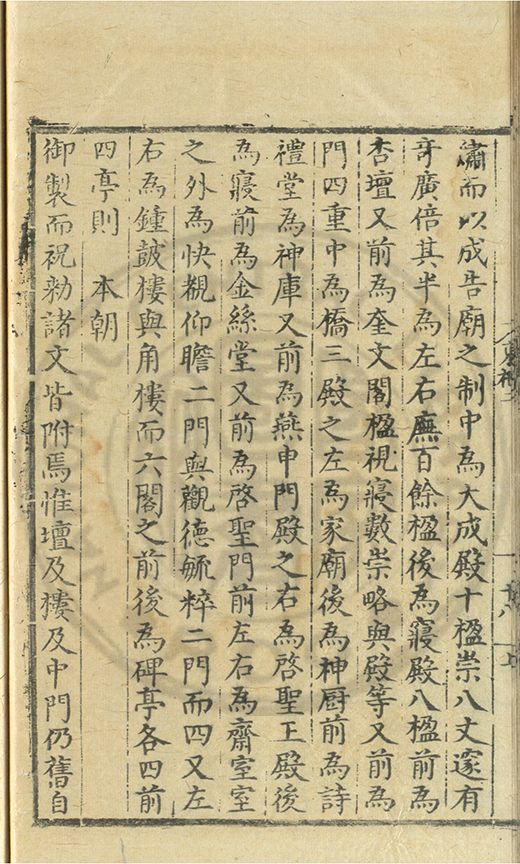 瀟而以成告廟之制中為大成殿十楹崇八丈邃有
奇廣倍其半為左右廡百餘楹後為寢殿八楹前為
杏壇又前為奎文閣楹視寢數崇略與殿等又前為
門四重中為橋三殿之左為家廟後為神厨前為詩
禮堂為神庫又前為燕申門殿之右為啓聖王殿後
為寢前為金絲堂又前為啓聖門前左右為齋室室
之外為快覩仰瞻二門與觀德毓粹二門而四又左
右為鍾鼓樓與角樓而六閣之前後為碑亭各四前
四亭則 本朝
御製而祝勑諸文皆附焉惟壇及樓及中門仍舊自